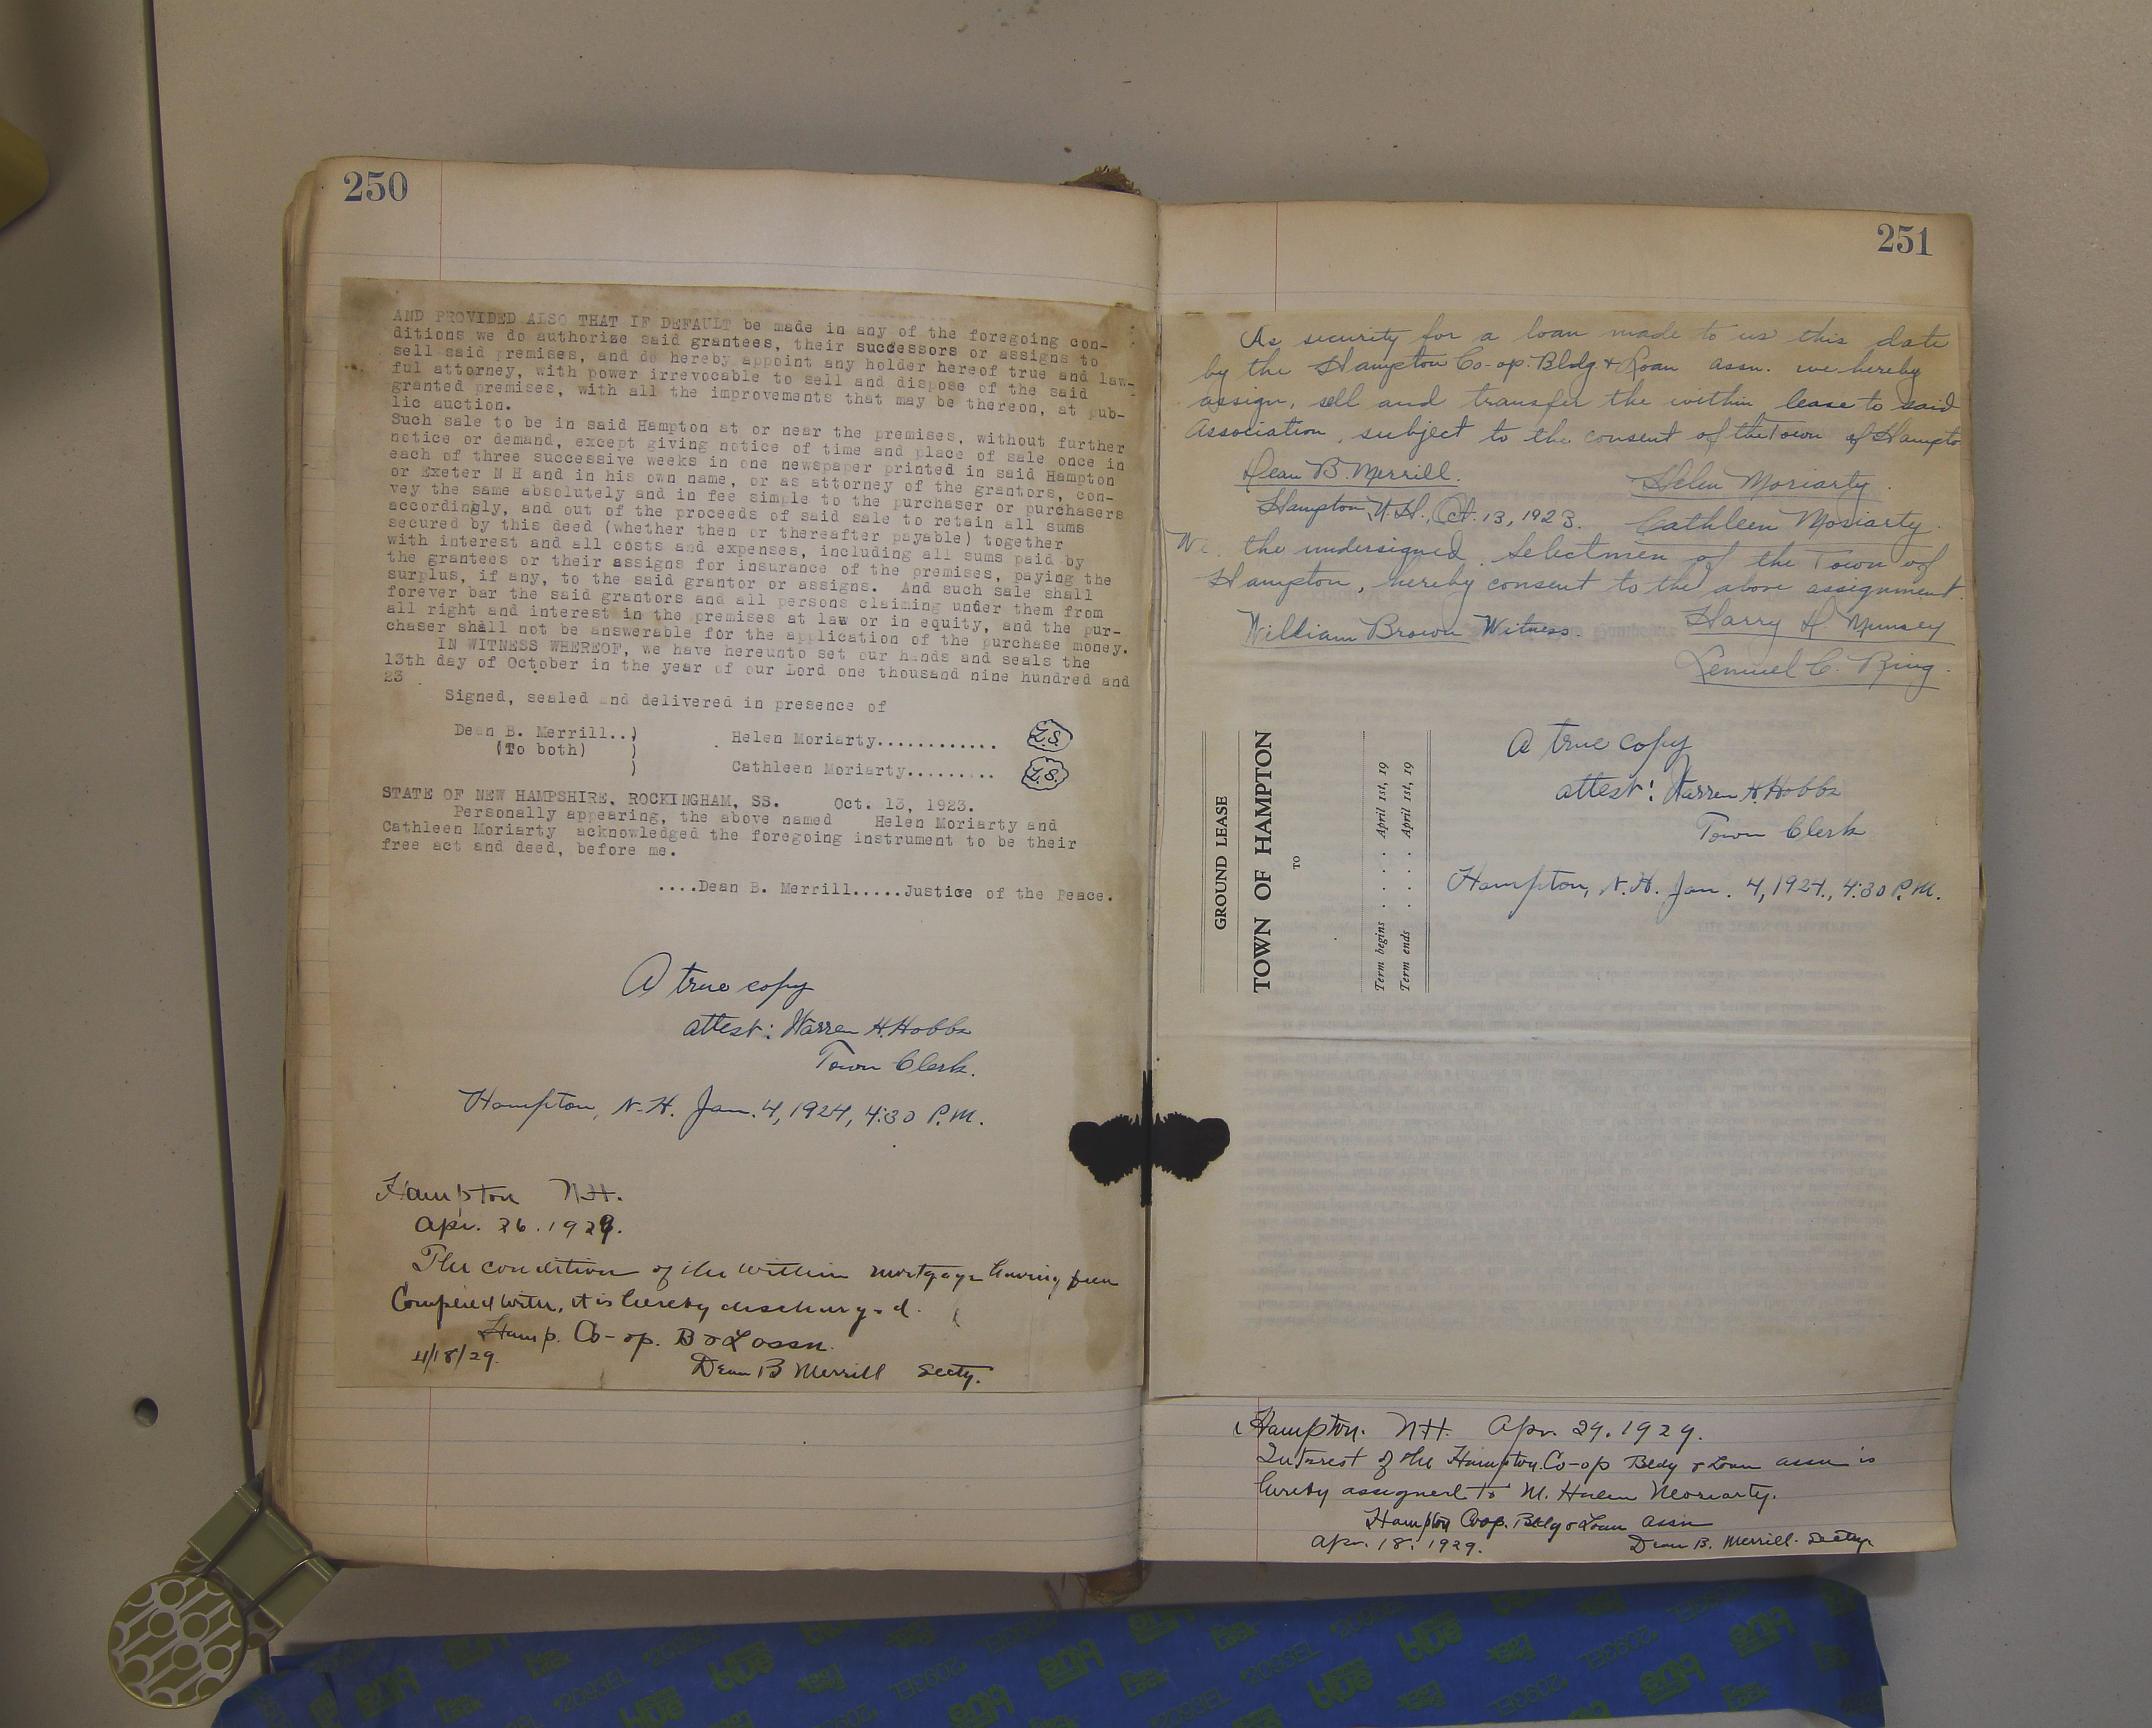 250
AND PROVIDED ALSO THAT IF DEFAULT be made in any of the foregoing con-
ditions we do authorize said grantees, their successors or assigns to
sell said premises, and do hereby appoint any holder hereof true and law-
ful attorney, with power irrevocable to sell and dispose of the said
granted premises, with all the improvements that may be thereon, at pub-
lic auction.
Such sale to be in said Hampton at or near the premises, without further
notice or demand, except giving notice of time and place of sale once in
each of three successive weeks in one newspaper printed in said Hampton
or Exeter N H and in his own name, or as attorney of the grantors, con-
vey the same absolutely and in fee simple to the purchaser or purchasers
accordingly, and out of the proceeds of said sale to retain all sums
secured by this deed (whether then or thereafter payable) together
with interest and all costs and expenses, including all sums paid by
the grantees or their assigns for insurance of the premises, paying the
surplus, if any, to the said grantor or assigns. And such sale shall
forever bar the said grantors and all persons claiming under them from
all right and interest in the premises at law or in equity, and the pur-
chaser shall not be answerable for the application of the purchase money.
IN WITNESS WHEREOF, we have hereunto set our hands and seals the
13th day of October in the year of our Lord one thousand nine hundred and
23
Signed, sealed and delivered in presence of
Dean B. Merrill..) Helen Moriarty............ L.S.
(To both) )
) Cathleen Moriarty......... L.S.
STATE OF NEW HAMPSHIRE, ROCKINGHAM, SS. Oct. 13, 1923.
Personally appearing, the above named Helen Moriarty and
Cathleen Moriarty acknowledged the foregoing instrument to be their
free act and deed, before me.
....Dean B. Merrill.....Justice of the Peace.
A true copy
attest: Warren H. Hobbs
Town Clerk.
Hampton, N.H. Jan. 4, 1924, 4:30 P.M.
Hampton N.H.
Apr. 26. 1929.
The condition of the within mortgage having been
Complied with, it is hereby discharged.
Hamp. Co-op. B & L assn.
4/18/29. Dean B Merrill Secty.
251
As security for a loan made to us this date
by the Hampton Co-op. Bldg & Loan assn. we hereby
assign, sell and transfer the within lease to said
Association, subject to the consent of the Town of Hampto
Dean B. Merrill. Helen Moriarty.
Hampton, N.H., Oct. 13, 1923. Cathleen Moriarty.
We, the undersigned, Selectmen of the Town of
Hampton, hereby consent to the above assignment.
William Brown Witness. Harry D. Munsey
Lemuel C. Ring.
GROUND LEASE
TOWN OF HAMPTON
TO
Term begins . . . . April 1st, 19
Term ends . . . . April 1st, 19
A true copy
attest: Warren H. Hobbs
Town Clerk
Hampton, N.H. Jan. 4, 1924., 4:30 P.M.
Hampton. N.H. Apr. 29. 1929.
Interest of the Hampton Co-op Bldg & Loan assn is
hereby assigned to M. Helen Moriarty.
Hampton Coop. Bldg & Loan assn
Apr. 18. 1929. Dean B. Merrill. Secty.